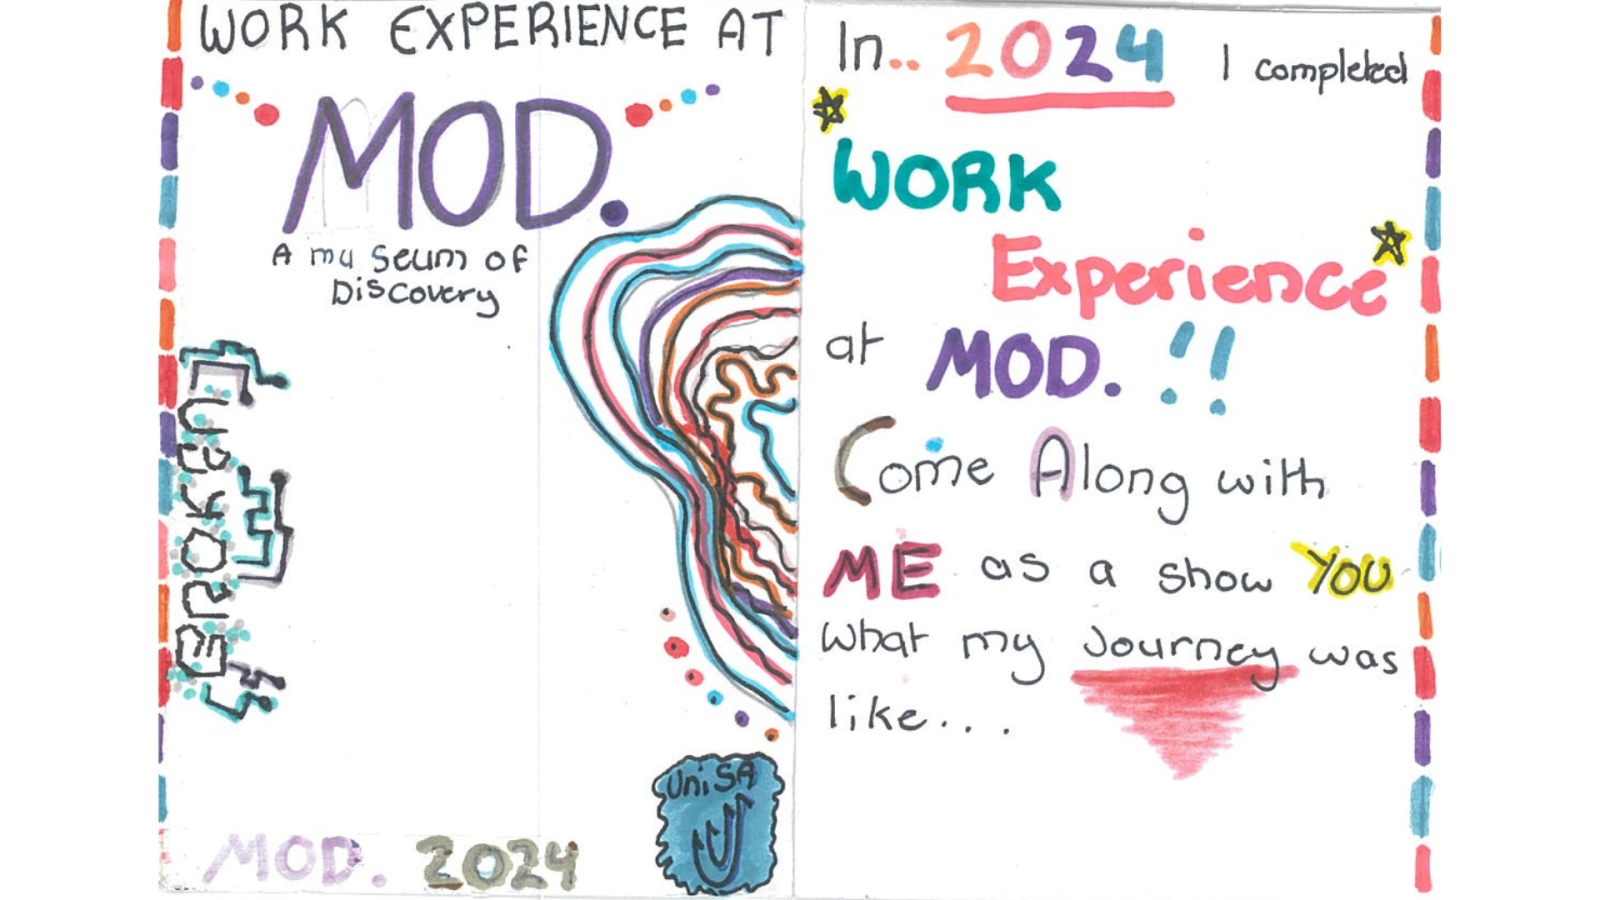 WORK EXPERIENCE AT
MOD.
A museum of
Discovery
BROKEN
UniSA
MOD. 2024
In.. 2024 I completed
WORK
Experience
at MOD. !!
Come Along with
ME as a show YOU
what my Journey was
like...